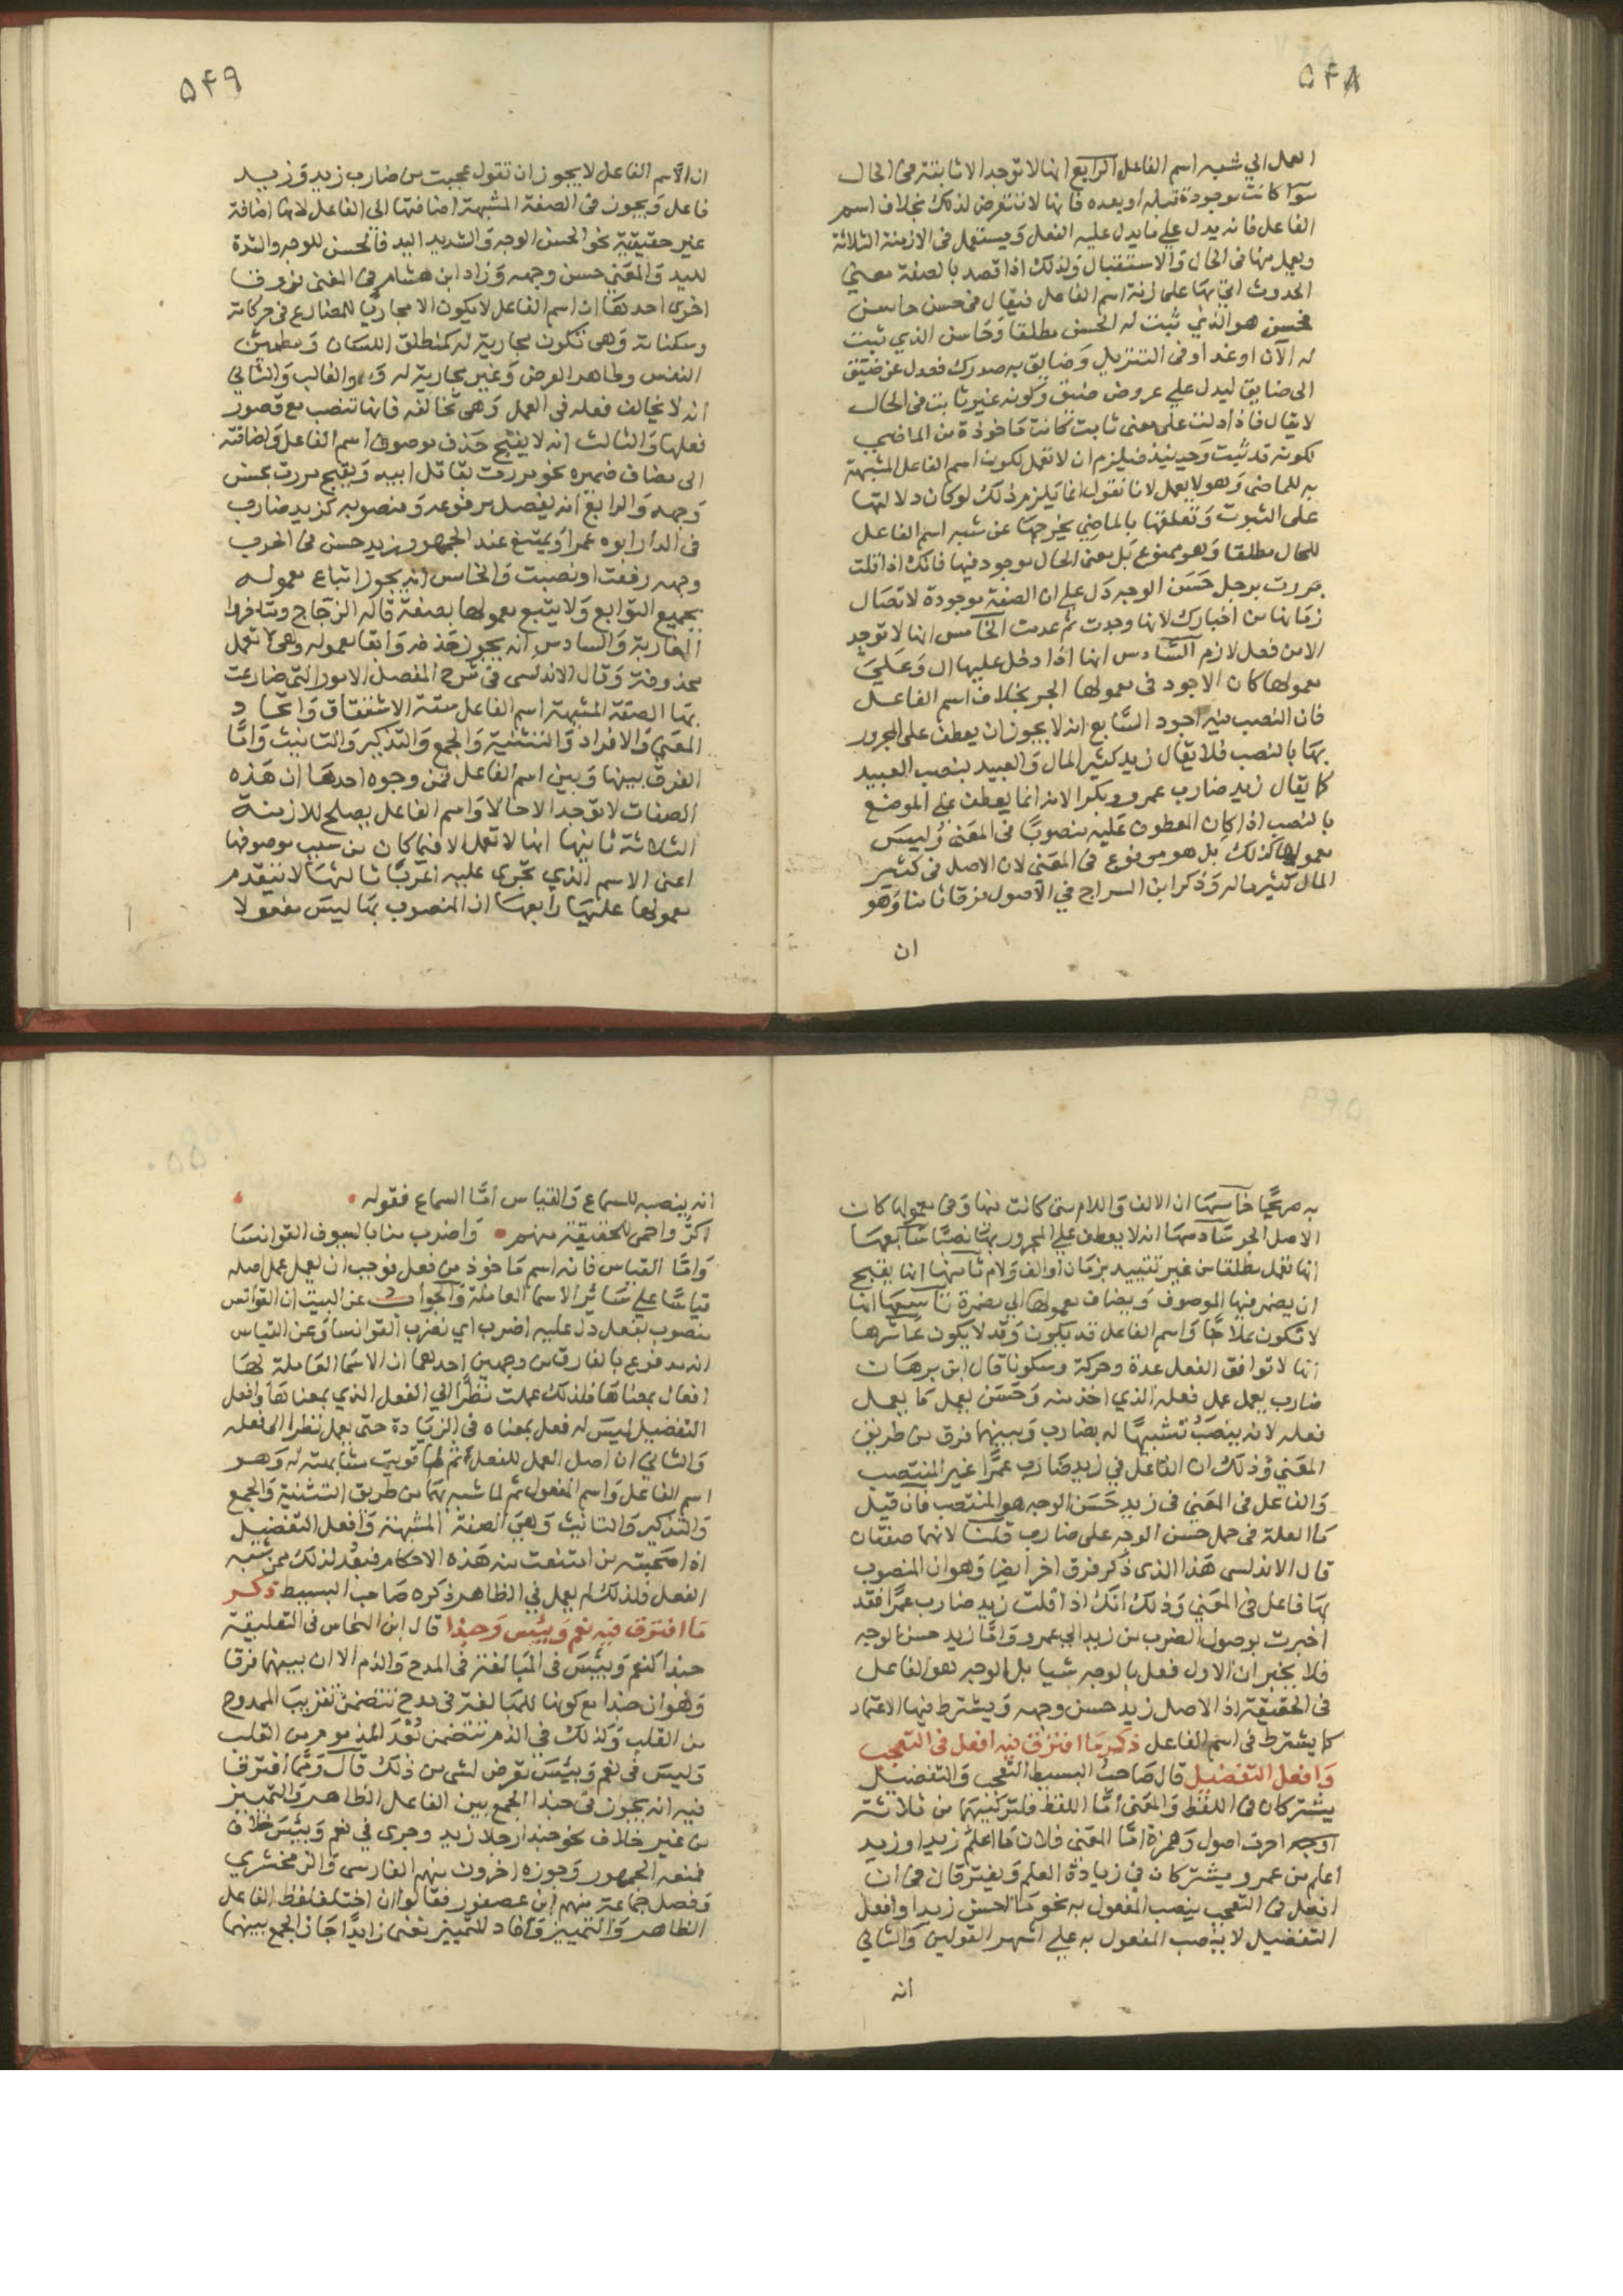 ۵۴۸
العمل الي شبه اسم الفاعل الرابع انها لا توجد الا ثابتة في الحال
سوا كانت موجودة قبله او بعده فانها لا تتعرض لذلك بخلاف اسم
الفاعل فانه يدل علي ما يدل عليه الفعل ويستعمل في الازمنة الثلاثة
ويعمل منها في الحال والاستقبال ولذلك اذا قصد بالصفة معني
الحدوث اتي بها على زنة اسم الفاعل فيقال في حسن حاسن
فحسن هو الذي ثبت له الحسن مطلقا وحاسن الذي ثبت
له الآن او غدا وفي التنزيل وضايق به صدرك فعدل عن ضيق
الى ضايق ليدل علي عروض ضيق وكونه غير ثابت في الحال
لا يقال فاذا دلت على معنى ثابت كانت ماخوذة من الماضي
لكونه قد ثبت وحينيذ فيلزم ان لا تعمل لكون اسم الفاعل المشبهة
به للماضي وهو لا يعمل لانا نقول انما يلزم ذلك لو كان دلالتها
على الثبوت وتعلقها بالماضي يخرجها عن شبه اسم الفاعل
للحال مطلقا وهو ممنوع بل معنى الحال موجود فيها فانك اذا قلت
مررت برجل حسن الوجه دل علي ان الصفة موجودة لاتصال
زمانها من اخبارك لا انها وجدت ثم عدمت الخامس انها لا توجد
الا من فعل لازم السادس انها اذا دخل عليها ال وعلي
معمولها كان الاجود في معمولها الجر بخلاف اسم الفاعل
فان النصب فيه اجود السابع انه لا يجوز ان يعطف على المجرور
بها بالنصب فلا يقال زيد كثير المال والعبيد بنصب العبيد
كما يقال زيد ضارب عمرو وبكرا لانه انما يعطف علي الموضع
بالنصب اذا كان المعطوف عليه منصوبا في المعني وليس
معمولها كذلك بل هو مرفوع في المعني لان الاصل في كثير
المال كثير ماله وذكر ابن السراج في الاصول فرقا ثامنا وهو
ان
۵۴۹
ان الاسم الفاعل لا يجوز ان تقول عجبت من ضارب زيد وزيد
فاعل ويجوز في الصفة المشبهة اضافتها الى الفاعل لانها اضافة
غير حقيقية نحو الحسن الوجه والشديد اليد فالحسن للوجه والشدة
لليد والمعني حسن وجهه وزاد ابن هشام في المغنى فروقا
اخرى احدها ان اسم الفاعل لا يكون الا مجاريا للمضارع في حركاته
وسكناته وهى تكون مجارية له كمنطلق اللسان ومطمئن
النفس وطاهر العرض وغير مجارية له وهو الغالب والثاني
انه لا يخالف فعله في العمل وهى تخالفه فانها تنصب مع قصور
فعلها والثالث انه لا يقبح حذف موصوف اسم الفاعل واضافته
الى مضاف ضميره نحو مررت بقاتل ابيه ويقبح مررت بحسن
وجهه والرابع انه يفصل مرفوعه ومنصوبه كزيد ضارب
في الدار ابوه عمرا ويمتنع عند الجمهور زيد حسن في الحرب
وجهه رفعت او نصبت والخامس انه يجوز اتباع معموله
بجميع التوابع ولا يتبع معمولها بصفة قاله الزجاج ومتاخروا
المغاربة والسادس انه يجوز حذفه وابقا معموله وهى لا تعمل
محذوفة وقال الاندلسى في شرح المفصل الامور التى ضارعت
بها الصفة المشبهة اسم الفاعل ستة الاشتقاق واتحاد
المعنى والافراد والتثنية والجمع والتذكير والتانيث واما
الفرق بينها وبين اسم الفاعل فمن وجوه احدها ان هذه
الصفات لا توجد الا حالا واسم الفاعل يصلح للازمنة
الثلاثة ثانيها انها لا تعمل الا فيما كان من سبب موصوفها
اعني الاسم الذي تجرى عليه اعرابا ثالثها لا يتقدم
معمولها عليها رابعها ان المنصوب بها ليس مفعولا
به صريحا خامسها ان الالف واللام متى كانت فيها وفي معمولها كان
الاصل الجر سادسها انه لا يعطف علي المجرور بها نصبا سابعها
انها تعمل مطلقا من غير تقييد بزمان او الف ولام ثامنها انها يقبح
ان يضمر فيها الموصوف ويضاف معمولها الي مضمره تاسعها انها
لا تكون علاجا واسم الفاعل قد يكون وقد لا يكون عاشرها
انها لا توافق الفعل عدة وحركة وسكونا قال ابن برهان
ضارب يعمل عمل فعله الذي اخذ منه وحسن يعمل ما يعمل
فعله لانه ينصب تشبيها له بضارب وبينهما فرق من طريق
المعني وذلك ان الفاعل في زيد ضارب عمرا غير المنتصب
والفاعل في المعني في زيد حسن الوجه هو المنتصب فان قيل
ما العلة في حمل حسن الوجه على ضارب قلنا لانهما صفتان
قال الاندلسى هذا الذى ذكر فرق اخر ايضا وهو ان المنصوب
بها فاعل في المعني وذلك انك اذا قلت زيد ضارب عمرا فقد
اخبرت بوصول الضرب من زيد الي عمرو واما زيد حسن الوجه
فلا يخبر ان الاول فعل بالوجه شيا بل الوجه هو الفاعل
في الحقيقة اذ الاصل زيد حسن وجهه ويشترط فيها الاعتماد
كما يشترط في اسم الفاعل ذكر ما افترق فيه افعل في التعجب
وافعل التفضيل قال صاحب البسيط التعجب والتفضيل
يشتركان في اللفظ والمعنى اما اللفظ فلتركيبهما من ثلاثة
احرف اصول وهمزة اما المعني فلان ما اعلم زيدا وزيد
اعلم من عمرو يشتركان في زيادة العلم ويفترقان في ان
افعل في التعجب ينصب المفعول به نحو ما احسن زيدا وافعل
التفضيل لا ينصب المفعول به علي اشهر القولين والثاني
انه
انه ينصبه للسماع والقياس اما السماع فقوله
اكر واحمى للحقيقة منهم واضرب منا بالسيوف القوانسا
واما القياس فانه اسم ماخوذ من فعل فوجب ان يعمل عمل اصله
قياسا علي سائر الاسما العاملة والجواب عن البيت ان القوانس
منصوب بفعل دل عليه اضرب اي نضرب القوانسا وعن القياس
انه مدفوع بالفارق من وجهين احدهما ان الاسما العاملة لها
افعال بمعناها فلذلك عملت نظرا الي الفعل الذي بمعناها وافعل
التفضيل ليس له فعل بمعناه في الزيادة حتى يعمل نظرا الى فعله
والثاني ان اصل العمل للفعل ثم لما قويت مشابهته له وهو
اسم الفاعل واسم المفعول ثم لما شبه بهما من طريق التثنية والجمع
والتذكير والتانيث وهى الصفة المشبهة وافعل التفضيل
اذا صحبته من امتنعت منه هذه الاحكام فبعد لذلك عن شبه
الفعل فلذلك لم يعمل في الظاهر ذكره صاحب البسيط ذكر
ما افترق فيه نعم وبئس وحبذا قال ابن النحاس في التعليقة
حبذا كنعم وبئس في المبالغة في المدح والذم الا ان بينهما فرقا
وهو ان حبذا مع كونها للمبالغة في مدح تتضمن تقريب الممدوح
من القلب وكذلك في الذم تتضمن بعد المذموم من القلب
وليس في نعم وبئس تعرض لشى من ذلك قال ومما افترقا
فيه انه يجوز في حبذا الجمع بين الفاعل الظاهر والتمييز
من غير خلاف نحو حبذا رجلا زيد وجرى في نعم وبئس خلاف
فمنعه الجمهور وجوزه اخرون منهم الفارسى والزمخشري
وفصل جماعة منهم ابن عصفور فقالوا ان اختلف لفظ الفاعل
الظاهر والتمييز وافاد للتمييز معنى زايدا جاز الجمع بينهما